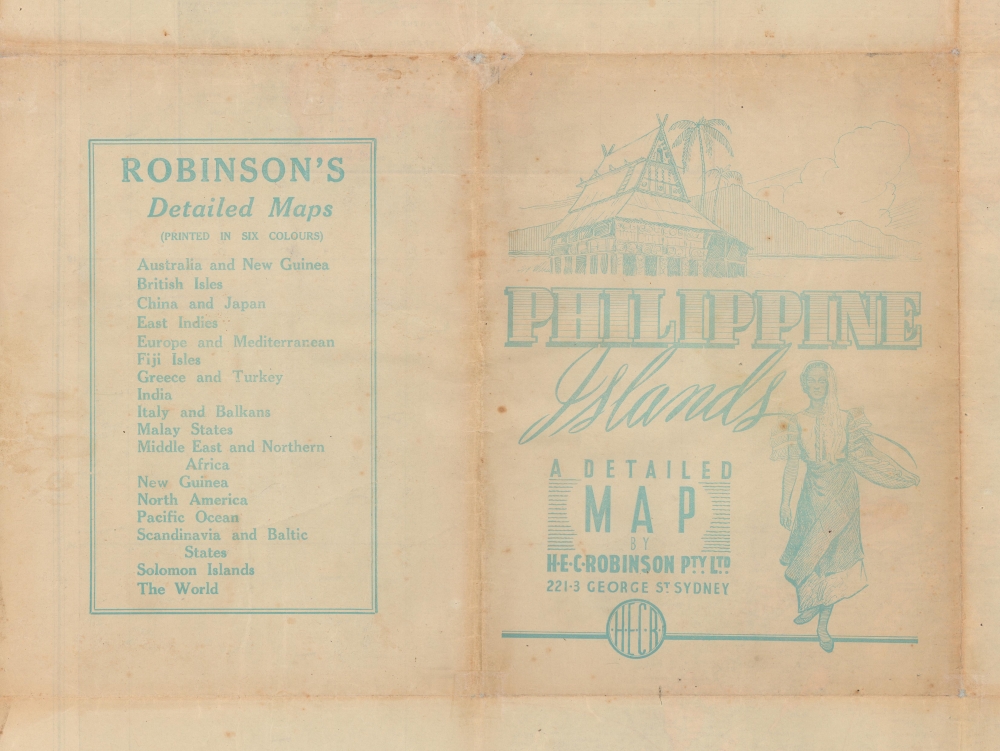 ROBINSON'S
Detailed Maps
(PRINTED IN SIX COLOURS)
Australia and New Guinea
British Isles
China and Japan
East Indies
Europe and Mediterranean
Fiji Isles
Greece and Turkey
India
Italy and Balkans
Malay States
Middle East and Northern
Africa
New Guinea
North America
Pacific Ocean
Scandinavia and Baltic
States
Solomon Islands
The World
PHILIPPINE
Islands
A DETAILED
MAP
BY
H·E·C·ROBINSON PTY LTD
221·3 GEORGE ST SYDNEY
·H·E·C·R·